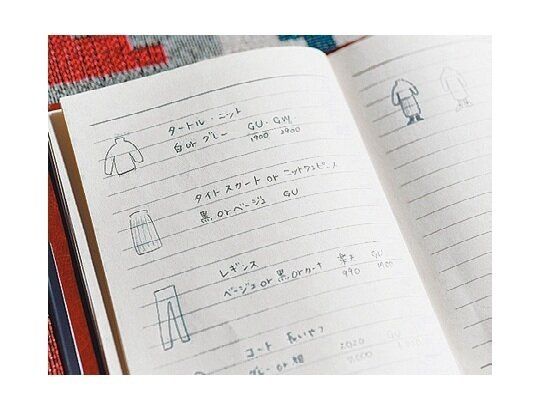 タートル・ニット
白 or グレー GU・GW
1900 2900
タイトスカート or ニットワンピース
黒 or ベージュ GU
レギンス
ベージュ or 黒 or カーキ 楽天 GU
990
コート 長いやつ 2020 GU
グレー or 紺